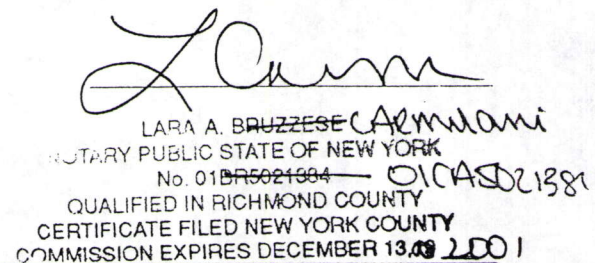 L Carm
LARA A. BRUZZESE CARmilani
NOTARY PUBLIC STATE OF NEW YORK
No. 01BR5021384 01CA5021381
QUALIFIED IN RICHMOND COUNTY
CERTIFICATE FILED NEW YORK COUNTY
COMMISSION EXPIRES DECEMBER 13, 2001